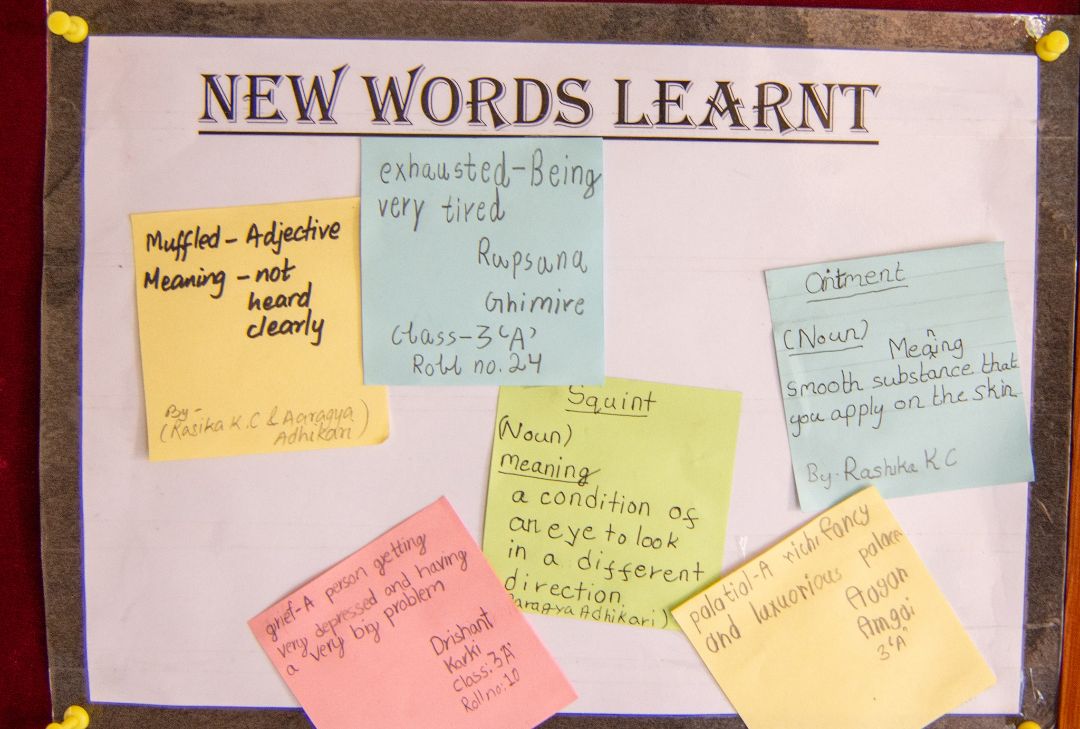 NEW WORDS LEARNT
exhausted-Being
very tired
Rupsana
Ghimire
Class-3 'A'
Roll no. 24
Muffled - Adjective
Meaning - not
heard
clearly
By-
(Rasika K.C & Aaragya
Adhikari)
Ointment
(Noun) Meaning
smooth substance that
you apply on the skin
By- Rashika K C
Squint
(Noun)
meaning
a condition of
an eye to look
in a different
direction
Aaragya Adhikari)
grief-A person getting
very depressed and having
a very big problem
Drishant
Karki
Class: 3'A'
Roll no: 10
palatial-A rich, fancy
and luxuorious palace
Aagan
Amgai
3 "A"